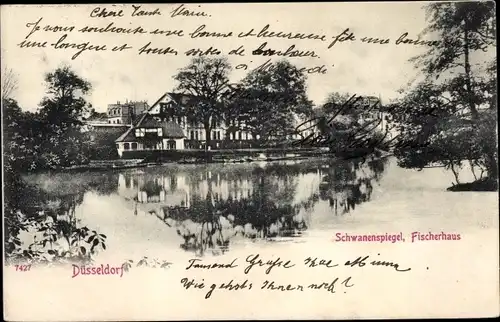 Chère Tante Maria.
Je vous souhaite une bonne et heureuse fête, une bonne
une longue et toutes sortes de bonheur
de
Schwanenspiegel, Fischerhaus
7427
Düsseldorf
Tausend Grüsse Ihre Minna,
Wie geht's Ihnen noch?